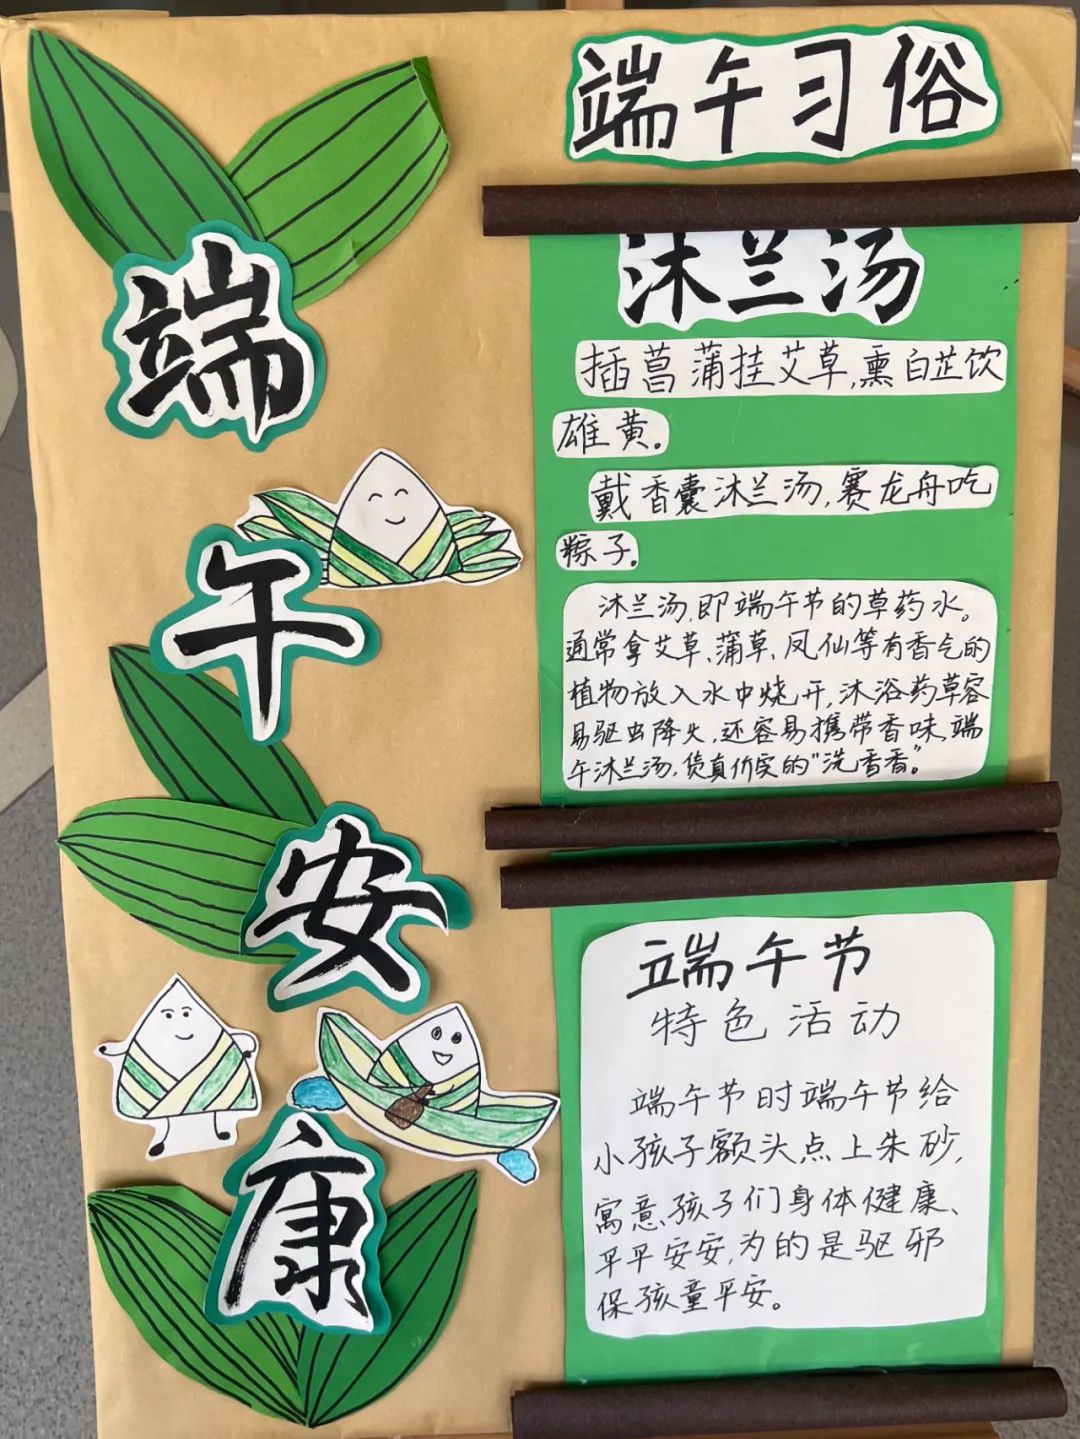 端午安康
端午习俗
沐兰汤
插菖蒲挂艾草,熏白芷饮
雄黄。
戴香囊沐兰汤,赛龙舟吃
粽子。
沐兰汤,即端午节的草药水。
通常拿艾草、蒲草、凤仙等有香气的
植物放入水中烧开,沐浴药草容
易驱虫降火,还容易携带香味,端
午沐兰汤,货真价实的“洗香香”。
端午节
特色活动
端午节时端午节给
小孩子额头点上朱砂,
寓意孩子们身体健康、
平平安安,为的是驱邪
保孩童平安。